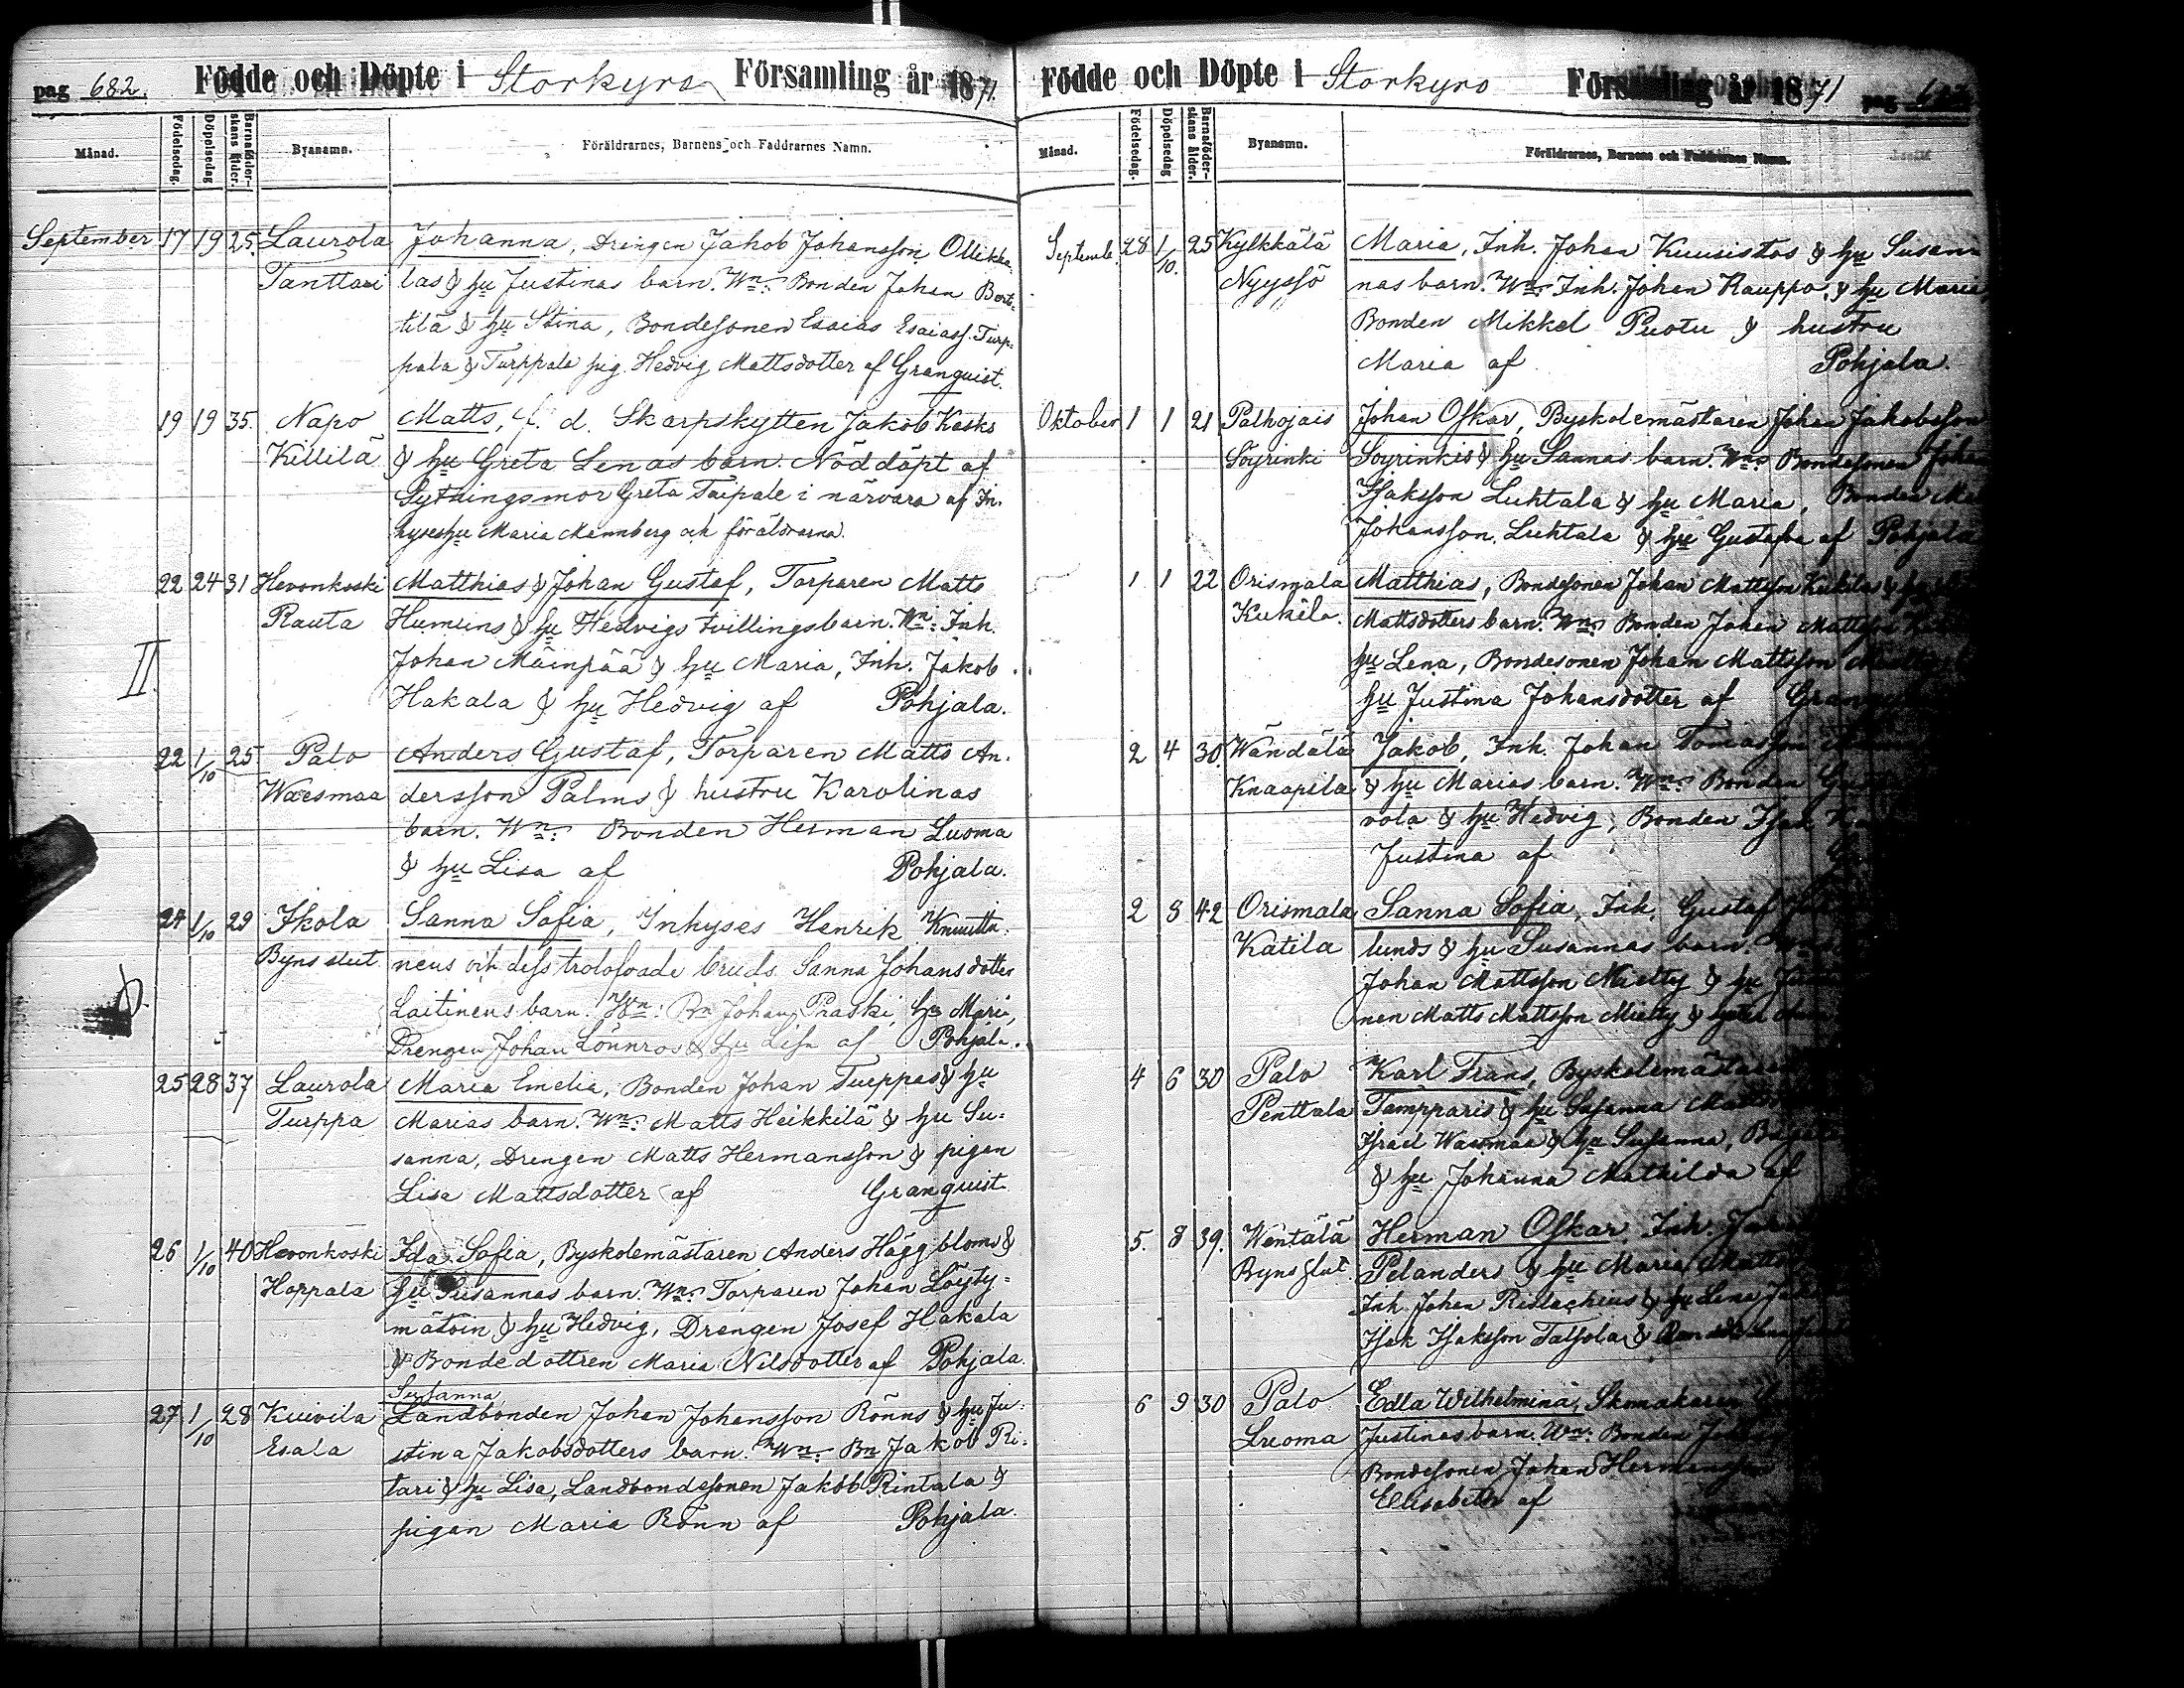 pag 682. Födde och Döpte i Storkyro Församling år 1871.
Månad. Födelsedag. Döpelsedag Barnaföderskans ålder. Byanamn. Föräldrarnes, Barnens och Faddrarnes Namn.
September 17 19 25. Laurola Johanna, Drengen Jakob Johansson Ollikka-
Tanttari las & hu Justinas barn. Wn: Bonden Johan Bert-
tilä & hu Stina, Bondesonen Esaias Esaiass. Turp-
pala & Turppala pig. Hedvig Mattsdotter af Granquist.
19 19 35. Napo Matts, f. d. Skarpskytten Jakob Kasks
Killilä & hu Greta Lenas barn. Nöddöpt af
Sytningsmor Greta Taipale i närvaro af In-
hyseshu Maria Mannberg och föräldrarna.
22 24 31 Hevonkoski Matthias & Johan Gustaf, Torparen Matts
Rauta Humuns & hu Hedvigs tvillingsbarn. Wn: Inh.
II. Johan Mäinpää & hu Maria, Inh. Jakob
Hakala & hu Hedvig af Pohjala.
22 1/10 25 Palo Anders Gustaf, Torparen Matts An-
Waesmaa dersson Palms & hustru Karolinas
barn. Wn: Bonden Herman Luoma
& hu Lisa af Pohjala.
24 1/10 29 Ikola Sanna Sofia, Inhyses Henrik Knuutti-
Byns slut. nens och dess trolofvade bruds Sanna Johansdotter
Laitinens barn. Wn: Bn Johan Praski, hu Maria,
Drengen Johan Lönnros & hu Lisa af Pohjala.
25 28 37 Laurola Maria Emelia, Bonden Johan Turppas & hu
Turppa Marias barn. Wn: Matts Heikkilä & hu Su-
sanna, Drengen Matts Hermansson & pigan
Lisa Mattsdotter af Granquist
26 1/10 40 Hevonkoski Ida Sofia, Byskolemästaren Anders Häggbloms &
Hoppala hu Susannas barn. Wn: Torparen Johan Löyty-
mätöin & hu Hedvig, Drengen Josef Hakala
& Bondedottren Maria Nilsdotter af Pohjala.
Susanna
27 1/10 28 Kuivila Landbonden Johan Johansson Rönns & hu Ju-
Esala stina Jakobsdotters barn. Wn: Bn Jakob Ri-
tari & hu Lisa, Landbondesonen Jakob Rintala &
pigan Maria Rönn af Pohjala.
Födde och Döpte i Storkyro Församling år 1871 pag
Månad. Födelsedag. Döpelsedag Barnaföderskans ålder. Byanamn. Föräldrarnes, Barnens och Faddrarnes Namn.
Septemb. 28 1/10. 25 Kylkkälä Maria, Inh. Johan Kuusistos & hu Susan-
Nyyssö nas barn. Wn: Inh. Johan Kauppo, & hu Maria,
Bonden Mikkel Puotu & hustru
Maria af Pohjala.
Oktober 1 1 21 Palhojais Johan Oskar, Byskolemästaren Johan Jakobsson
Söyrinki Söyrinkis & hu Sannas barn. Wn: Bondesonen Johan
Isaksson Luhtala & hu Maria, Bonden
Johansson Luhtala & hu Gustafva af Pohjala
1 1 22 Orismala Matthias, Bondesonen Johan Mattsson Kukila &
Kukila. Mattsdotters barn. Wn: Bonden Johan Mattsson
hu Lena, Bondesonen Johan Mattsson
hu Justina Johansdotter af
2 4 30. Wändälä Jakob, Inh. Johan Tomasson
Knaapila & hu Marias barn. Wn: Bonden
vola & hu Hedvig, Bonden Isak
Justina af
2 8 42 Orismala Sanna Sofia, Inh. Gustaf
Katila lunds & hu Susannas barn.
Johan Mattsson Mietty & hu
nen Matts Mattsson Mietty &
4 6 30 Palo Karl Frans, Byskolemästaren
Penttala Tampparis & hu Susanna
Israel Waesmaa & hu Susanna,
& hu Johanna Mathilda af
5. 8 39. Wentälä Herman Oskar, Inh.
Byns slut Pelanders & hu Maria
Inh. Johan Ristlachius & hu Lena
Isak Isaksson Talsola &
6 9 30 Palo Edla Wilhelmina, Skomakaren
Luoma Justinas barn. Wn: Bonden
Bondesonen Johan Hermansson
Elisabeth af